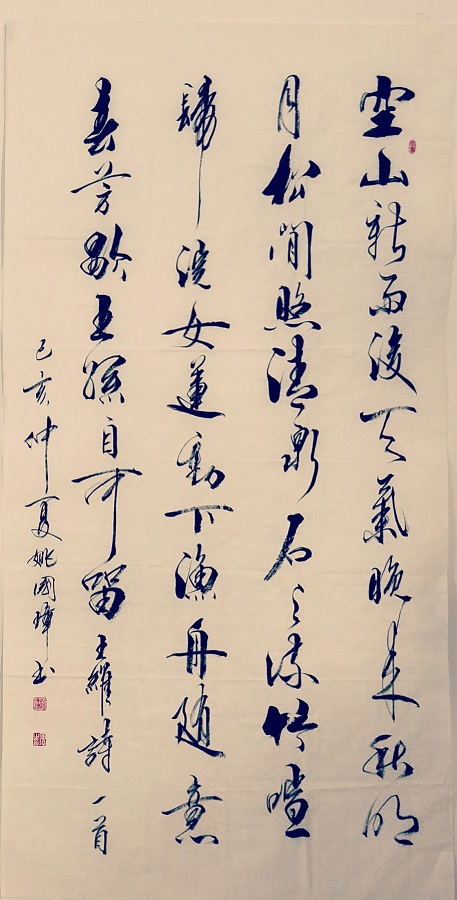 空山新雨後天氣晚来秋明
月松間照清泉石上流竹喧
歸浣女蓮動下漁舟随意
春芳歇王孫自可留王維詩一首
己亥仲夏姚國璋书